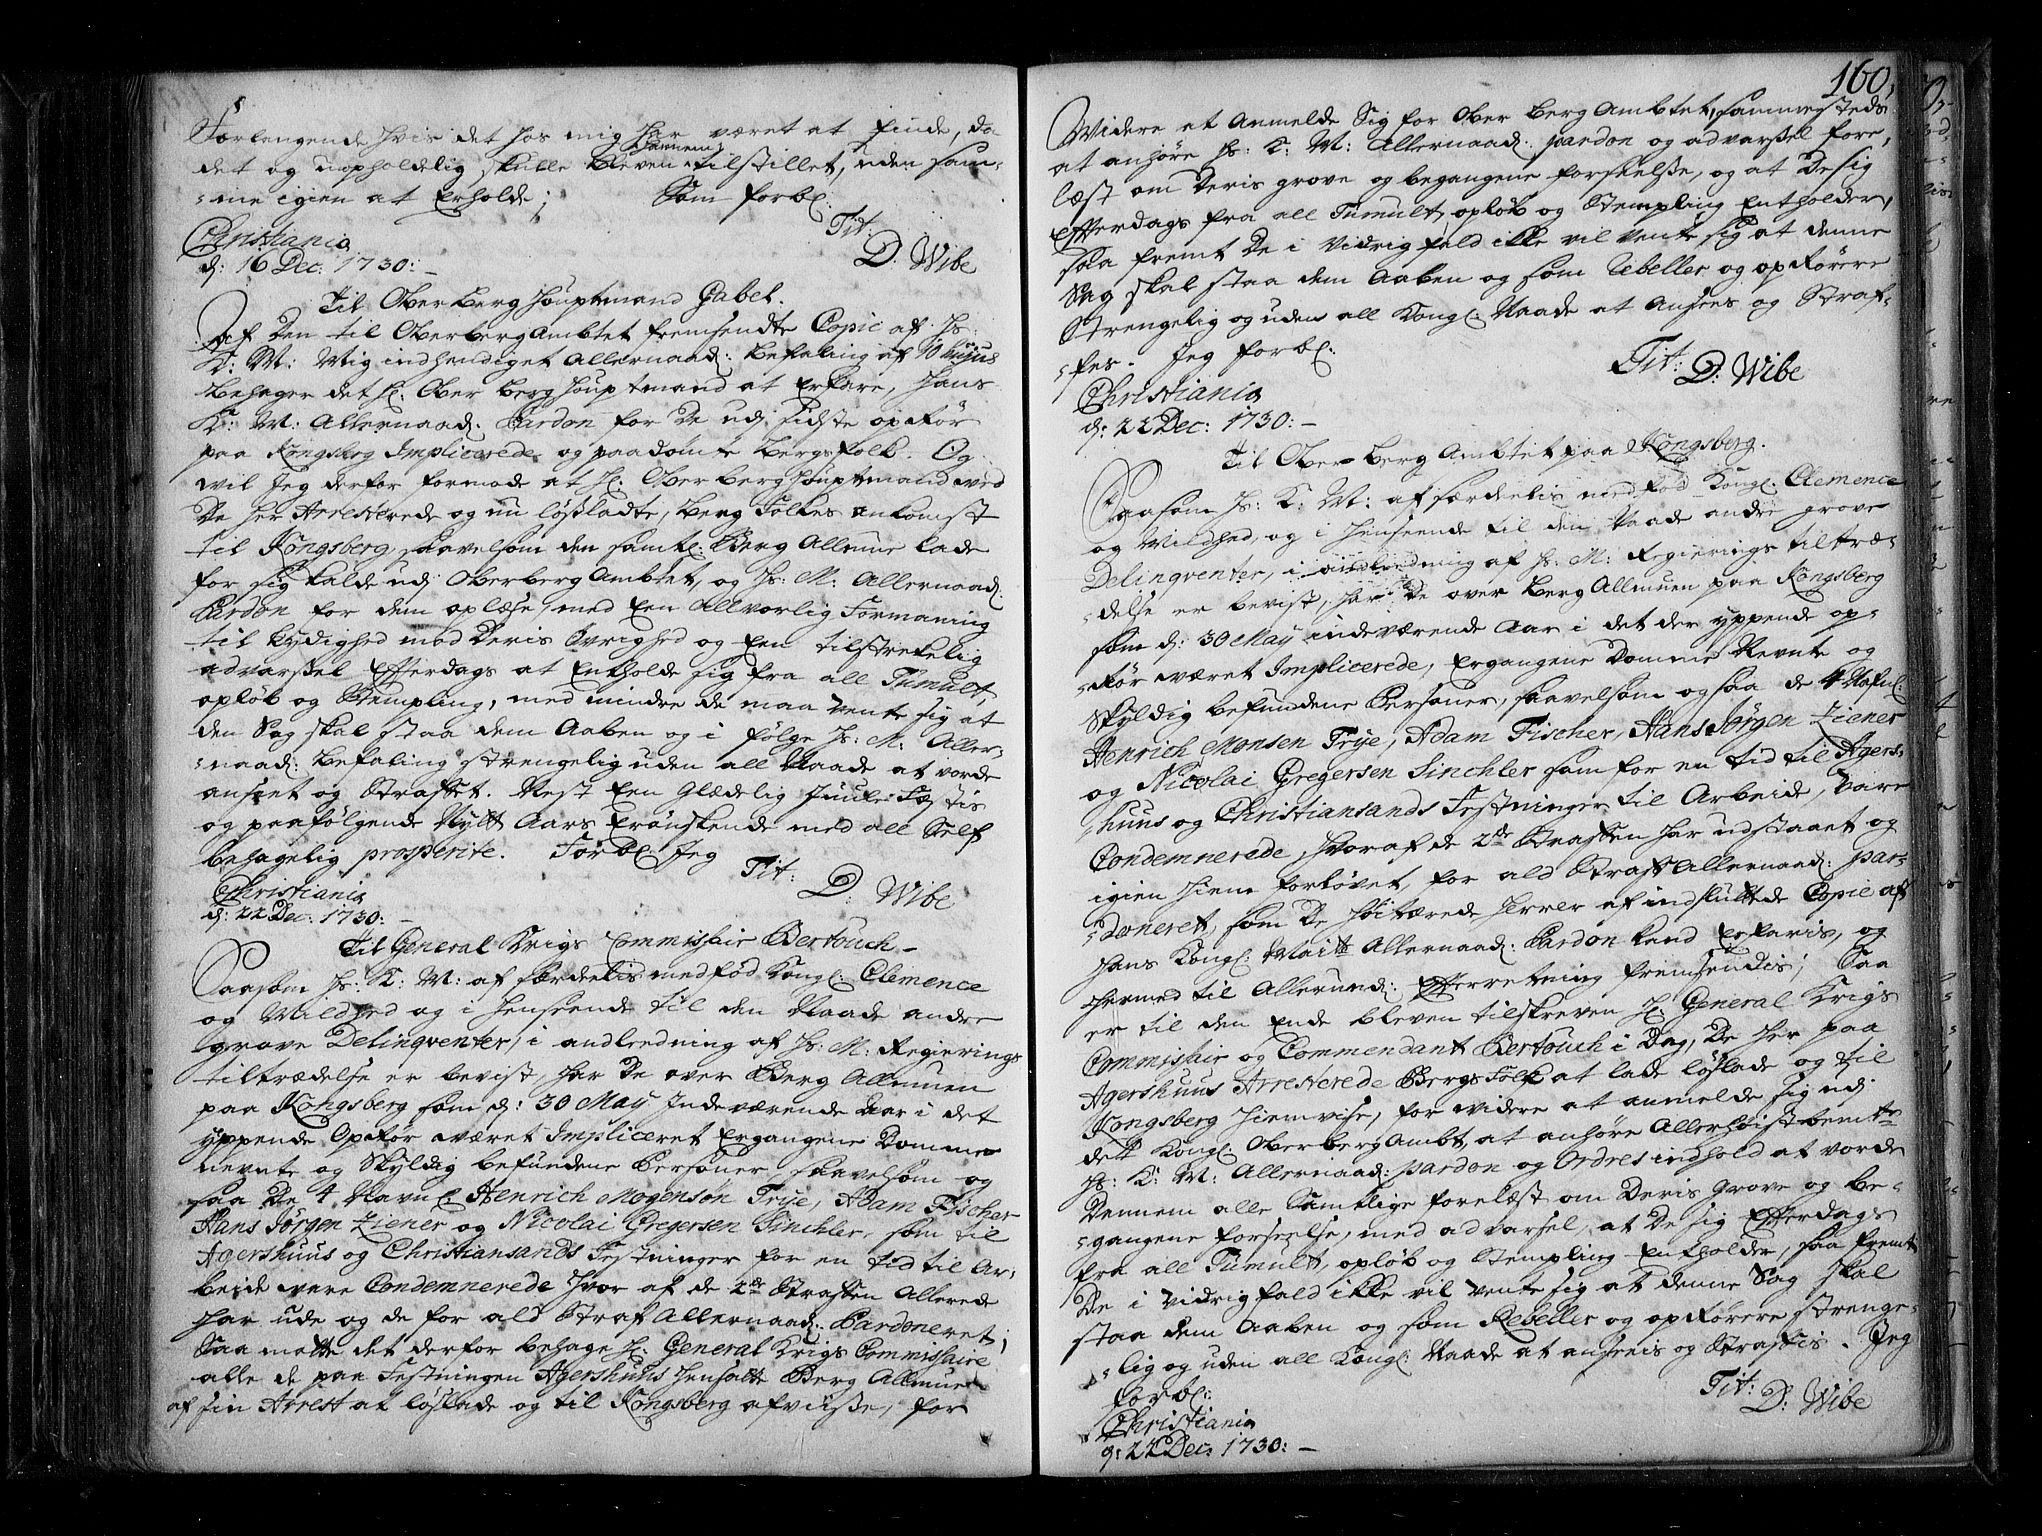 Forlengende hvis det hos mig har været at finde, da
det og uopholdelig skulle bleven hannem tilstillet, uden sam-
-me igien at Erholde; Som forbl:
Tit:
D: Wibe
Christiania
d: 16 Dec: 1730:
Til Ober Berg Houptmand Gabel.
Af Den til Oberberg Ambtet fremsendte Copie af Hs:
K: M: Mig indhendiget Allernaad: Befaling af 10 hujus
behager det H: Ober Berg Houptmand at Erfare, Hans
K: M: Allernaad: Pardon for De udj sidste opkør
paa Kongsberg Implicerede og paadømte Bergfolk. Og
vil Jeg derfor formode at H: Ober Berg Houptmand ved
De her Arresterede og nu løsladte, Berg Folkes ankomst
til Kongsberg, saavelsom den samtl: Berg Allmue lade
for sig kalde udj Oberberg Ambtet, og Hs: M: Allernaad:
Pardon for dem oplæse, med Een allvorlig Formaning
til Lydighed mod Deris Øvrighed og Een tilstrekelig
advarsel Efterdags at Entholde sig fra all Tumult,
opløb og Stempling, med mindre de maa vente sig at
den Sag skal staa dem Aaben og i følge Hs: M: Aller-
-naad: befaling strengelig uden all Naade at vorde
anseet og Straffet. Nest Een Glædelig Juule Festis
og paafølgende Nytt Aars Erønskende med all Self
behagelig prosperite. Forbl: Jeg
Tit:
D: Wibe
Christiania
d: 22 Dec: 1730:
Til General Krigs Commissair Bertouch.
Saasom Hs: K: M: af særdelis medfød Kongl: Clemence
og Mildhed og i Henseende til den Naade andre
grove Delinqventer, i andledning af Hs: M: Regierings
tiltrædelse er bevist, har De over Berg Allmuen
paa Kongsberg som d: 30 May Indeværende Aar i det
yppende Opkør været Impliceret Ergangene Domme
nevnte og Skyldig befundene Persohner, saavelsom og
saa De 4 Navnl: Henrich Mogensøn Trye, Adam Fischer
Hans Jørgen Ziener og Nicolai Gregersen Sinchler, som til
Agershuus og Christiansands Festninger for en tid til Ar-
beide vare Condemnerede hvor af de 2de Straffen Allerede
har ude og de for ald Straf Allernaad: Pardoneret;
Saa matte det derfor behage H: General Krigs Commissaire
alle de paa Festningen Agershuus hensatte Berg Allmue
af sin Arrest at løslade og til Kongsberg afviise, for
160,
Widere at Anmelde Sig for Ober Berg Ambtet, sammesteds
at anhøre Hs: K: M: Allernaad: pardon og advarsel fore-
læst om Deris grove og begangene forseelse, og at De sig
Efterdags fra all Tumult, opløb og Stempling Entholder,
saa fremt De i Vidrig fald ikke vil vente sig at denne
Sag skal staa dem Aaben og som Rebeller og opkørere
Strengelig og uden all Kongl: Naade at Ansees og Straf-
-fes. Jeg forbl:
Tit:
D: Wibe
Christiania
d: 22 Dec: 1730:
Til Ober Berg Ambtet paa Kongsberg.
Saasom Hs: K: M: af særdelis medfød Kongl: Clemence
og Mildhed, og i Henseende til den Naade andre grove
Delinqventer, i andledning af Hs: M: Regierings tiltræ-
-delse er bevist, har De over Berg Allmuen paa Kongsberg
som d: 30 May indeværende Aar i det der yppende op-
-kør været Implicerede, Ergangene Domme Nevnte og
Skyldig befundene Persohner, saavelsom og saa de 4 Nafnl:
Henrich Monsen Trye, Adam Fischer, Hans Jørgen Ziener
og Nicolai Gregersen Sinchler som for en tid til Agers-
-huus og Christiansands Festninger til Arbeide, vare
Condemnerede, hvoraf de 2de Straffen har udstaaet og
igien Hiem forløvet, for ald Straf Allernaad: par-
-doneret, som De Høitærede Herrer af indsluttede Copie af
Hans Kongl: Maitts Allernaad: Pardon kand Erfaris, og
hermed til Allerund: Efterretning fremsendis; Saa
er til den Ende bleven tilskreven H: General Krigs
Commissair og Commendant Bertouch i Dag, De her paa
Agershuus Arresterede Bergs Folk at lade løslade og til
Kongsberg Hiemvise, for videre at anmelde sig udj
dett Kongl: Oberberg Ambt, at anhøre Allerhøistbemte
Hs: K: M: Allernaad: pardon og Ordres indhold at vorde
Dennem alle Samtlige forelæst om Deris grove og be-
-gangene forseelse, med advarsel, at De sig Efterdags
fra all Tumult, opløb og Stempling Entholder, saa fremt
De i Vidrig fald ikke vil vente sig at denne Sag skal
staa dem Aaben og som Rebeller og opkørere strenge-
-lig og uden all Kongl: Naade at anseeis og Straffis. Jeg
forbl:
Tit:
D: Wibe
Christiania
d: 22 Dec: 1730: